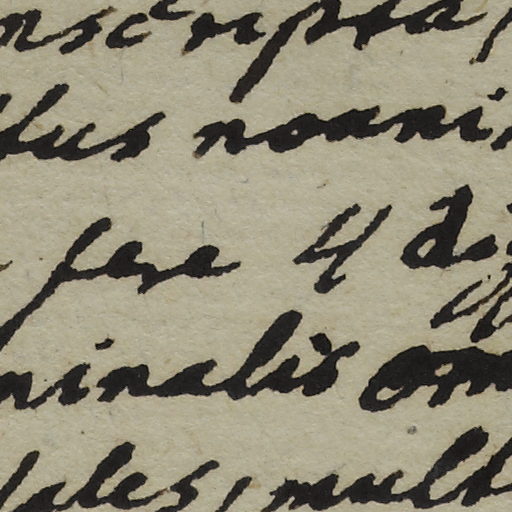 nscripta,
tus nonni
fere 4 di
ninalis om
fales, mult